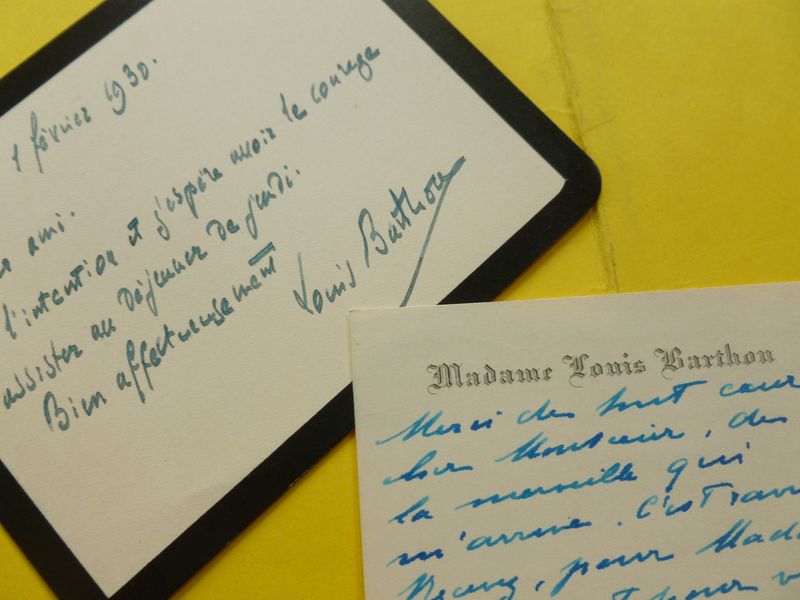 1 février 1930.
ami.
l'intention et j'espère avoir le courage
assister au déjeuner de jeudi.
Bien affectueusement
Louis Barthou
Madame Louis Barthou
Merci de tout cœur
cher Monsieur, de
la merveille qui
m'arrive. C'est
pour